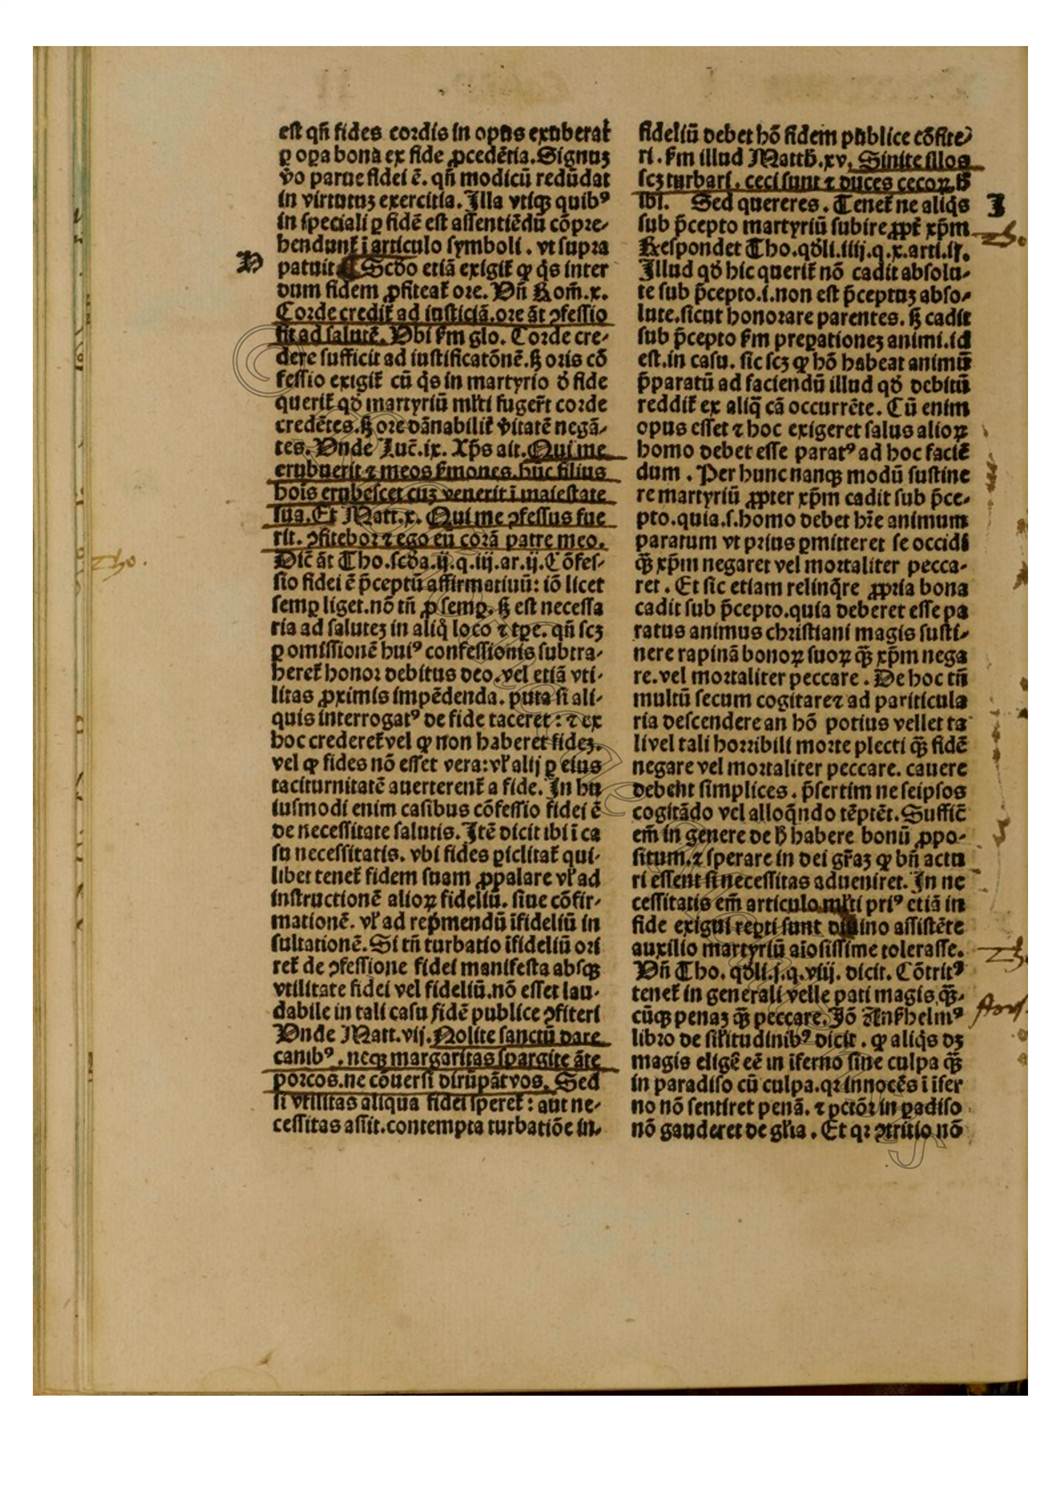 est qñ fides cordis in opus exuberat
ꝑ oꝑa bona ex fide ꝓcedētia. Signuꝫ
v̊o parue fidei ē. qñ modicū redūdat
in virtutuꝫ exercitia. Illa vtiqꝫ quibꝰ
in speciali ꝑ fidē est assentiēdū cōpre-
hendunt᷑ ī articulo symboli. vt supra
H
patuit. ¶ Scd̄o etiā exigit᷑ ꝙ q̇s inter
dum fidem ꝓfiteat᷑ ore. Vñ Rom̄.x.
Corde credit᷑ ad iusticiā. ore āt ꝯfessio
fit ad salutē. Vbi ẜm glo. Corde cre-
dere sufficit ad iustificatōnē. ẜꝫ oris cō
fessio exigit᷑ cū q̇s in martyrio d̓ fide
querit᷑ qd̓ martyriū ml̓ti fuger̄t corde
credētes. ẜꝫ ore dānabilit̓ v̓itatē negā-
tes. Vnde Luc̄.ix. Xp̄s ait. Qui me
erubuerit ⁊ meos ẜmones. huc filius
hoīs erubescet cuꝫ venerit ī maiestate
sua. Et Matt.x. Qui me ꝯfessus fue
rit. ꝯfitebor ⁊ ego eū corā patre meo.
Tho.
Dic̄ āt Tho. scd̄a.ij.q.iij.ar.ij. Cōfes-
sio fidei ē p̄ceptū affirmatiuū: iō licet
semꝑ liget. nō tñ ꝓ semꝑ. ẜꝫ est necessa
ria ad saluteꝫ in aliq̊ loco ⁊ tꝑe. qñ scꝫ
ꝑ omissionē huiꝰ confessionis subtra-
heret᷑ honor debitus deo. vel etiā vti-
litas ꝓximis impēdenda. puta si ali-
quis interrogatꝰ de fide taceret: ⁊ ex
hoc crederet᷑ vel ꝙ non haberet fideꝫ.
vel ꝙ fides nō esset vera: vl̓ alij ꝑ eius
taciturnitatē auerterent᷑ a fide. In hu
iusmodi enim casibus cōfessio fidei ē
de necessitate salutis. Itē dicit ibi ī ca
su necessitatis. vbi fides ꝑiclitat᷑ qui-
libet tenet᷑ fidem suam ꝓpalare vl̓ ad
instructionē alioꝝ fideliū. siue cōfir-
mationē. vl̓ ad rep̓mendū īfideliū in
sultationē. Si tñ turbatio īfideliū ori
ret᷑ de ꝯfessione fidei manifesta absqꝫ
vtilitate fidei vel fideliū. nō esset lau-
dabile in tali casu fidē publice ꝯfiteri
Vnde Matt.vij. Nolite sanctū dare
canibꝰ. neqꝫ margaritas spargite āte
porcos. ne cōuersi dirūpāt vos. Sed
si vtilitas aliqua fidei speret᷑: aut ne-
cessitas assit. contempta turbatiōe in-
fideliū debet hō fidem publice cōfite
ri. ẜm illud Matth̄.xv. Sinite illos
scꝫ turbari. ceci sunt ⁊ duces cecoꝝ. h̓
ibi. Sed quereres. Tenet᷑ ne aliq̇s
J
sub p̄cepto martyriū subire ꝓpt̓ xp̄m
Tho.
Respondet Tho. qd̓li.iiij.q.x.arti.ix.
Illud qd̓ hic querit᷑ nō cadit absolu-
te sub p̄cepto.i.non est p̄ceptuꝫ abso-
lute. sicut honorare parentes. ẜꝫ cadit
sub p̄cepto ẜm preꝑationeꝫ animi. id
est. in casu. sic scꝫ ꝙ hō habeat animū
p̄paratū ad faciendū illud qd̓ debitū
reddit᷑ ex aliq̄ cā occurrēte. Cū enim
opus esset ⁊ hoc exigeret salus alioꝝ
homo debet esse paratꝰ ad hoc faciē
dum. Per hunc nanqꝫ modū sustine
re martyriū ꝓpter xp̄m cadit sub p̄ce-
pto. quia.s.homo debet hr̄e animum
paratum vt prius ꝑmitteret se occidi
q̄ꝫ xp̄m negaret vel mortaliter pecca-
ret. Et sic etiam relinq̄re ꝓpria bona
cadit sub p̄cepto. quia deberet esse pa
ratus animus christiani magis susti-
nere rapinā bonoꝝ suoꝝ q̄ꝫ xp̄m nega
re. vel mortaliter peccare. De hoc tñ
multū secum cogitare⁊ ad pariticula
ria descendere an hō potius vellet ta
li vel tali horribili morte plecti q̄ꝫ fidē
negare vel mortaliter peccare. cauere
debent simplices. p̄sertim ne seipsos
cogitādo vel alloq̄ndo tēptēt. Suffic̄
em̄ in genere de h̓ habere bonū ꝓpo-
situm. ⁊ sperare in dei gr̄aꝫ ꝙ bñ actu
ri essent si necessitas adueniret. In ne
cessitatis em̄ articulo ml̓ti priꝰ etiā in
fide exigui reꝑti sunt diuino assistēte
auxilio martyriū aīosissime tolerasse.
Tho.
Vñ Tho. qd̓li.j.q.viij. dicit. Cōtritꝰ
tenet᷑ in generali velle pati magis q̄ꝫ-
cūqꝫ penaꝫ q̄ꝫ peccare. Iō Anshelmꝰ
libro de sil̓itudinibꝰ dicit. ꝙ aliq̇s dꝫ
magis eligē eē in īferno sine culpa q̄ꝫ
in paradiso cū culpa. qꝛ innocēs ī īfer
no nō sentiret penā. ⁊ pctōr in ꝑadiso
nō gauderet de gl̓ia. Et qꝛ ꝯtritio nō